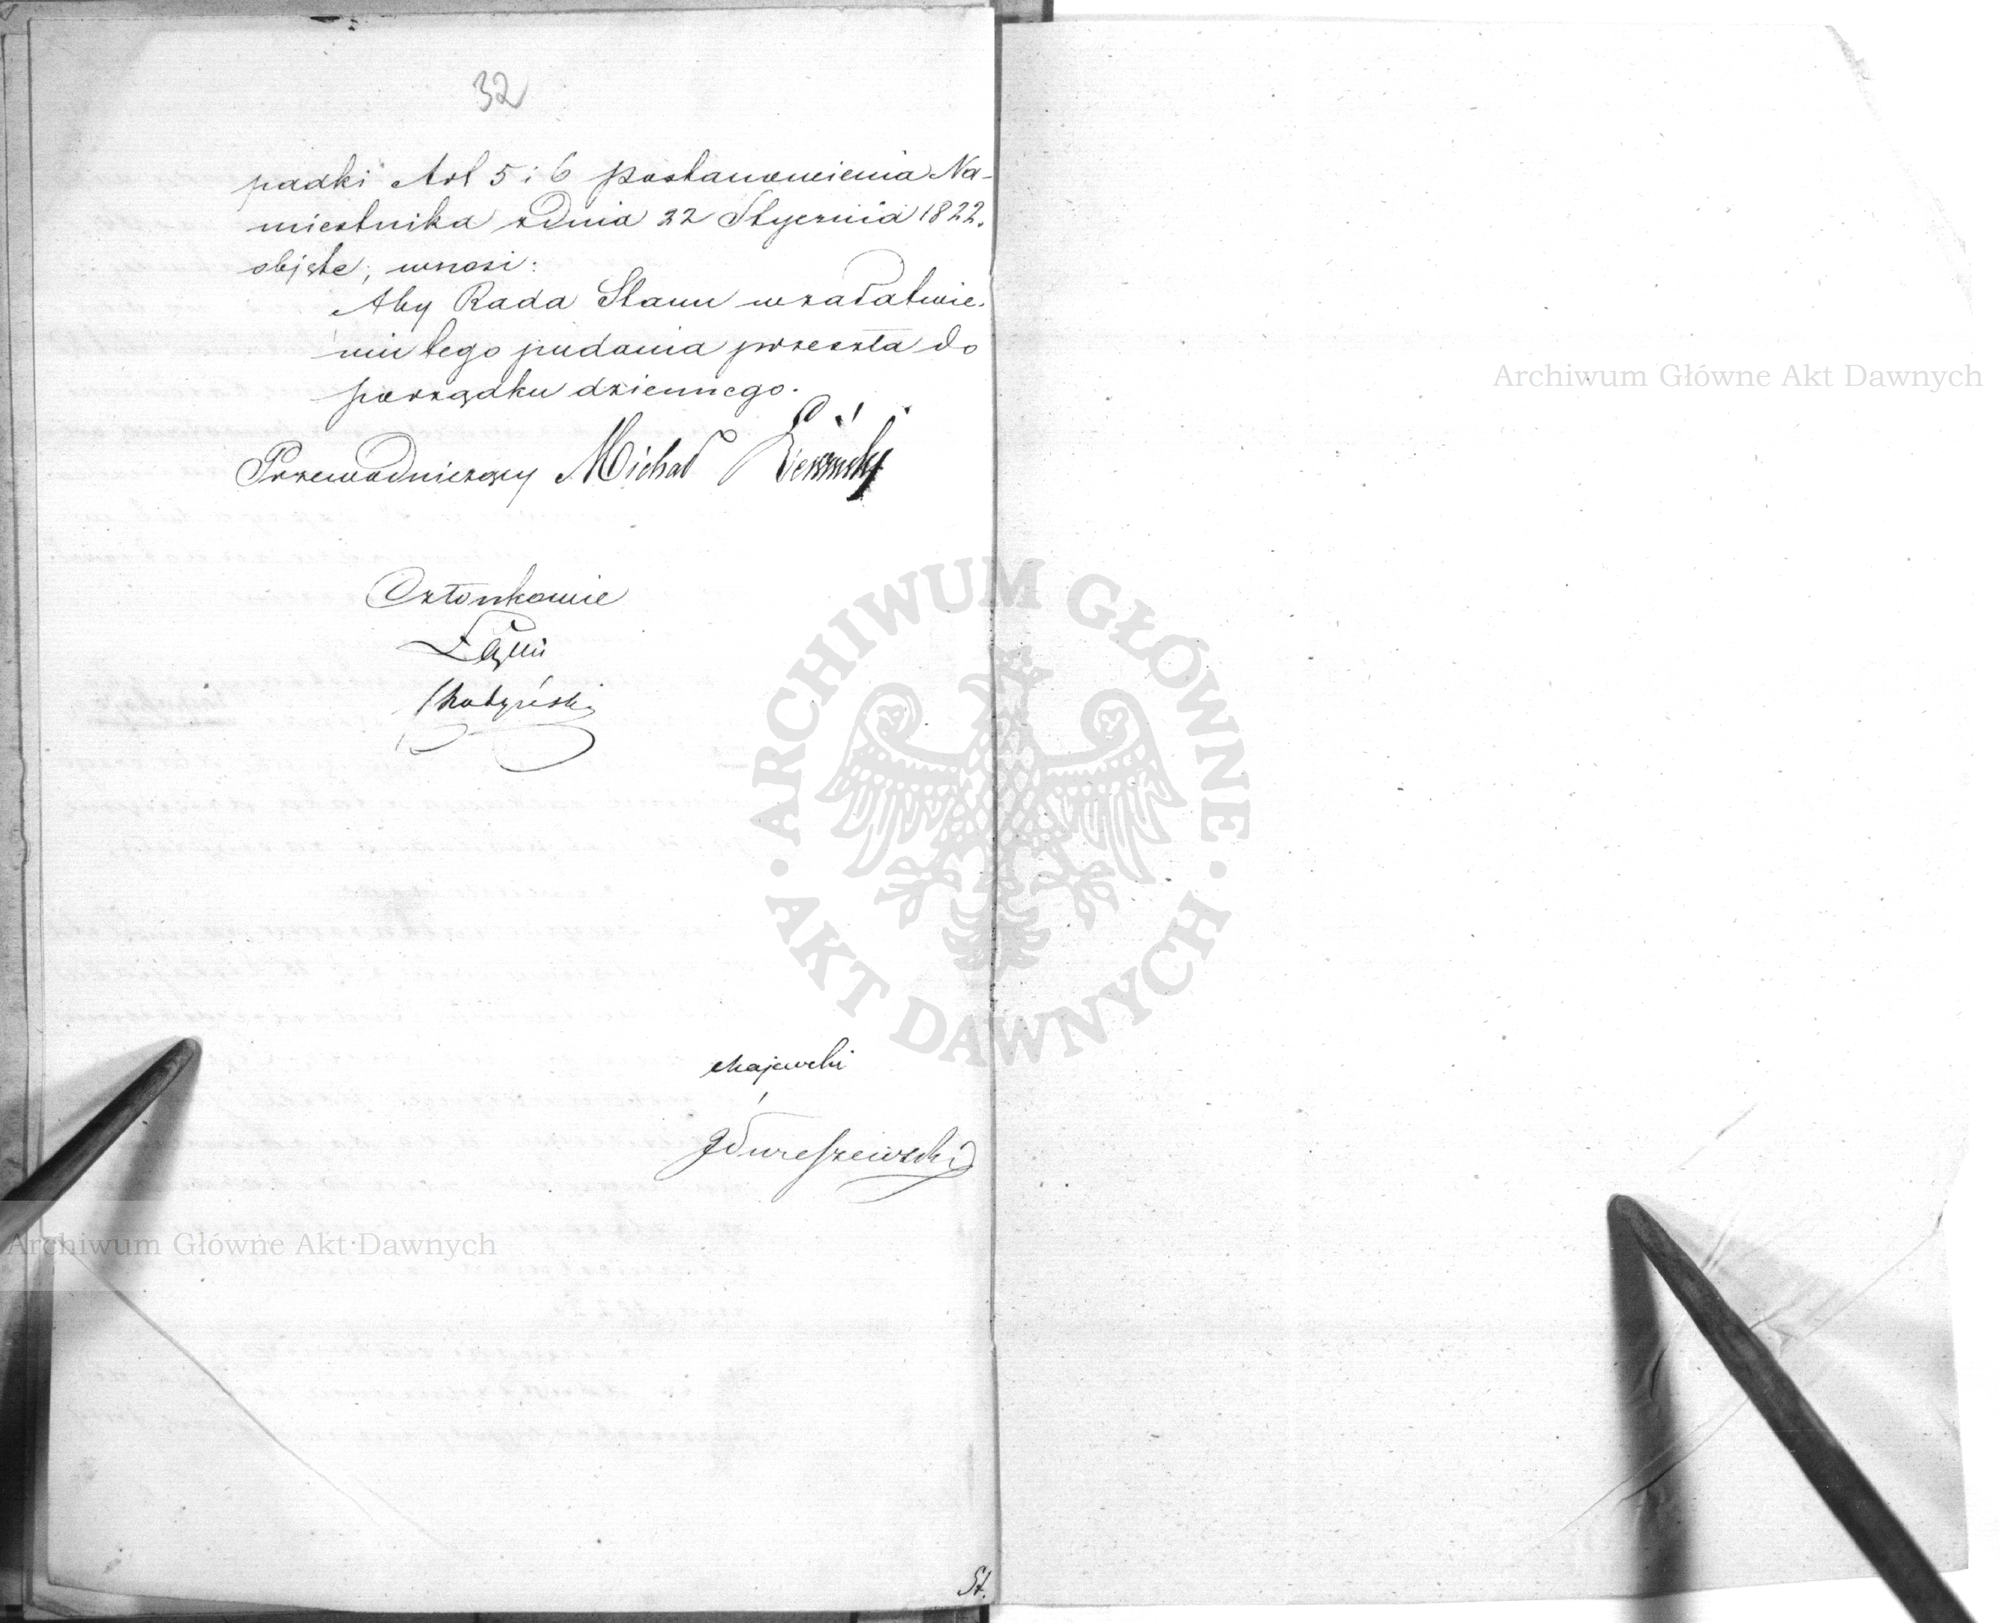 32
padki Art 5 i 6 postanowienia Na-
miestnika z dnia 22 Stycznia 1822.
objęte, wnosi:
Aby Rada Stanu w załatwie-
niu tego podania przeszła do
porządku dziennego.
Przewodniczący Michał
Członkowie
Majewski
St.
Archiwum Główne Akt Dawnych
Archiwum Główne Akt Dawnych
ARCHIWUM GŁÓWNE AKT DAWNYCH